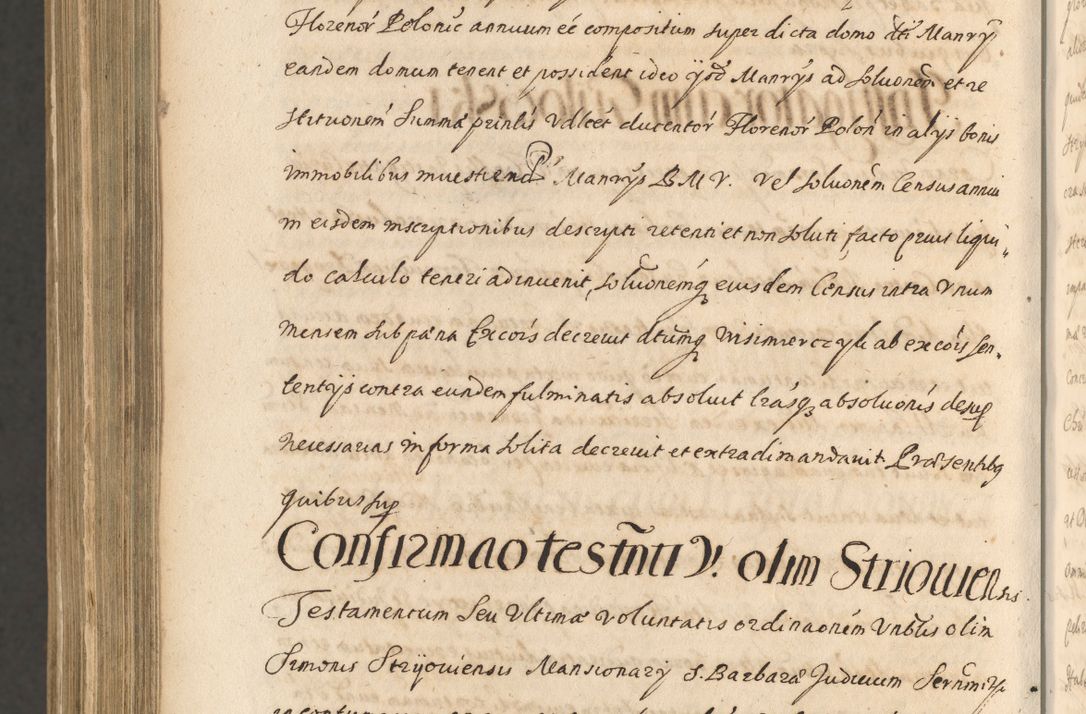 Florenor̃ Polonic̃ annuum eé compositum super dicta domo dtĩ Manrÿ
eandem domum tenent et possident ideo ÿsd̃ Manrÿs ad soluonem̃ et re
stituonem̃ Summæ prinlis Vdlcet ducentor̃ Florenor̃ Polon̄ in alijs bonis
immobilibus inuestiend Manrÿs B M V. vel soluonem̃ Census annui
in eisdem inscriptionibus descripti retenti et non soluti, facto prius liqui„
do calculo teneri adinuenit, soluonemq̃ eiusdem Census intra Vnum
mensem sub pæna Excoĩs decreuit dtumq̃ Wisimierczyk ab excoĩs sen„
tentijs contra eundem fulminatis absoluit lrasq̃ absoluonis desup
necessarias in forma solita decreuit et extradi mandauit. Præsentibq
quibus sup
Confirmao testm̃ti V. olim Striouien sis.
Testamentum seu Vltimæ Voluntatis ordinaonem̃ Vnblis olim
Simonis Stryouiensis Mansionarÿ S. Barbaræ Judicium